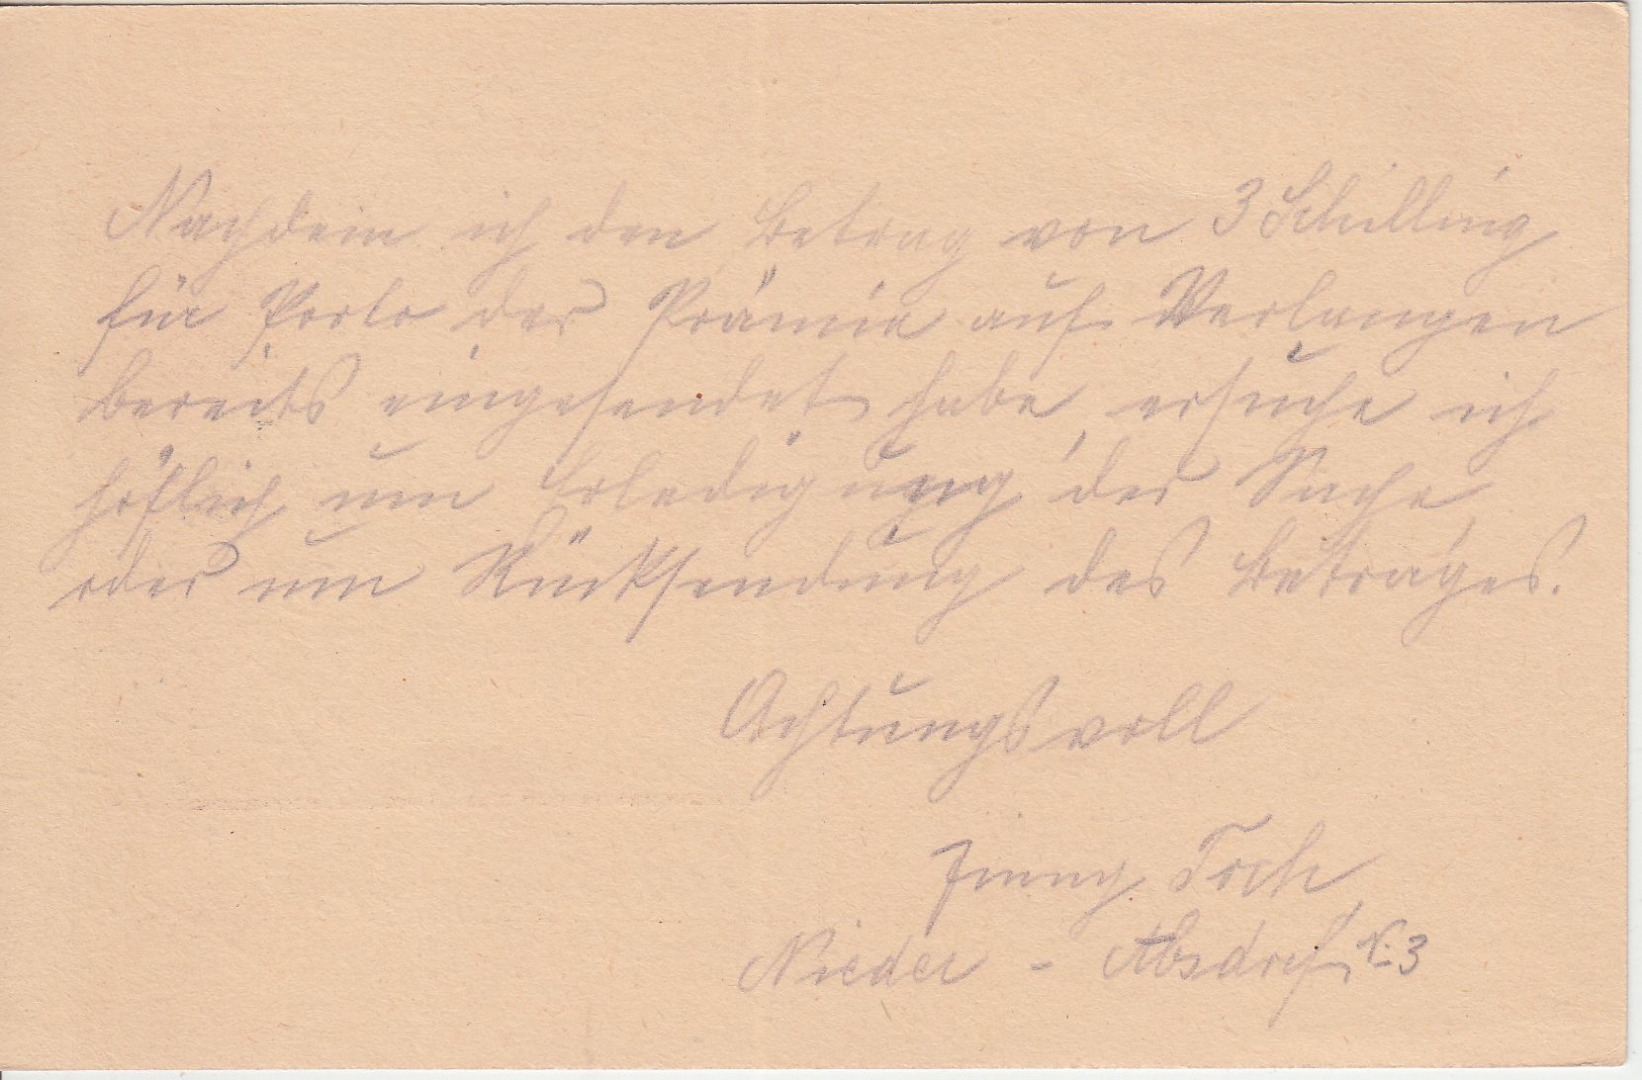 Nachdem ich den Betrag von 3 Schilling
für Porto der Prämie auf Verlangen
bereits eingesendet habe, ersuche ich
höflich um Erledigung der Sache,
oder um Rücksendung des Betrages.
Achtungsvoll
Toch
Nieder - Absdorf 3